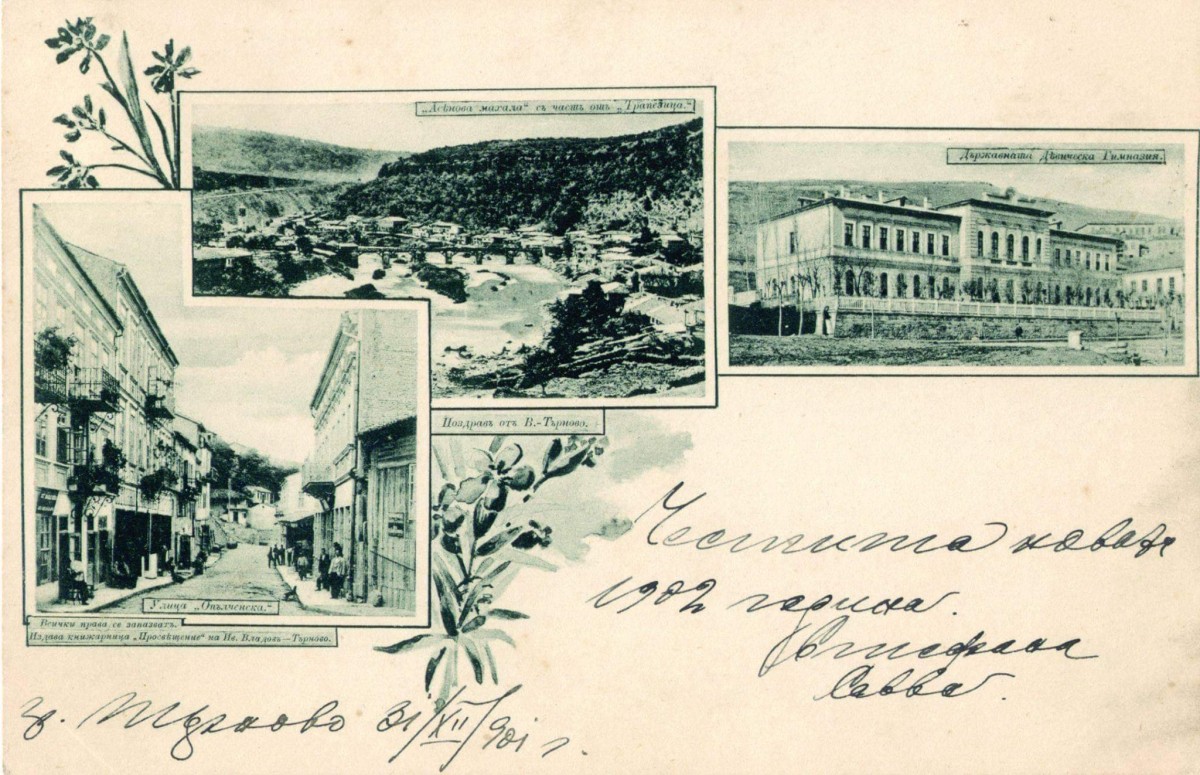 „Асѣнова махала“ съ часть отъ „Трапезица.“
Държавната Дѣвическа Гимназия.
Поздравъ отъ В.-Търново.
Улица „Опълченска.“
Всички права се запазватъ.
Издава книжарница „Просвѣщение“ на Ив. Владовъ—Търново.
Честита новата
1902 година.
Савва
гр. Търново 31/XII/901 г.